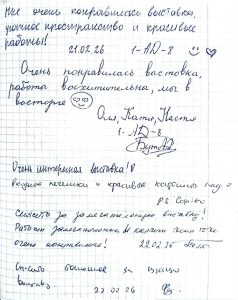 Мне очень понравилась выставка,
уютное пространство и красивые
работы!
21.02.26 1-АД-8
Очень понравилась выставка,
работы восхитительны, мы в
восторге
Оля, Катя, Настя
1-АД-8
Очень интересная выставка!
и красивые картины
P.S.
Спасибо за замечательную выставку!
Работы замечательные,
очень понравились! 22.02.26
Спасибо большое за
выставку. 22.02.26